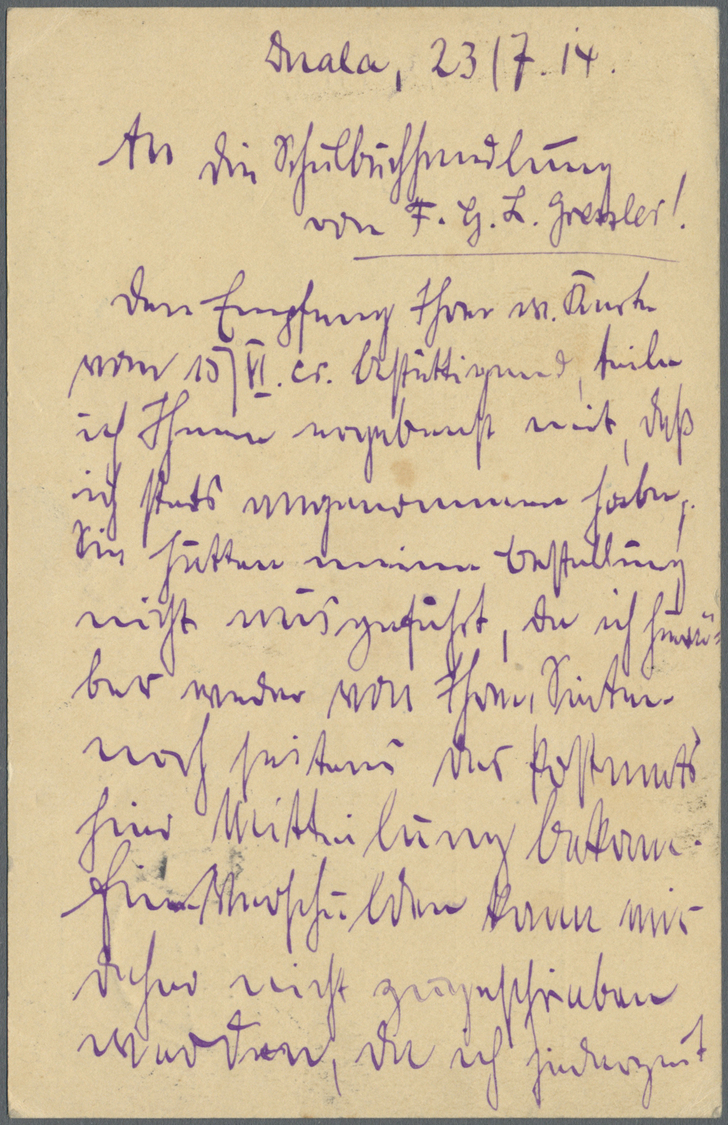 Duala, 23/7. 14.
An die Schulbuchhandlung
von F. G. L. Gressler!
Den Empfang Ihrer w. Karte
vom 15/VI. cr. bestättigend, teile
ich Ihnen ergebenst mit, daß
ich stets angenommen habe,
Sie hätten meine Bestellung
nicht ausgeführt, da ich hierü-
ber weder von Ihrer Seite
noch seitens des Postamts
hier Mitteilung bekam.
Ein Verschulden kann mir
daher nicht zugeschrieben
werden, da ich jederzeit